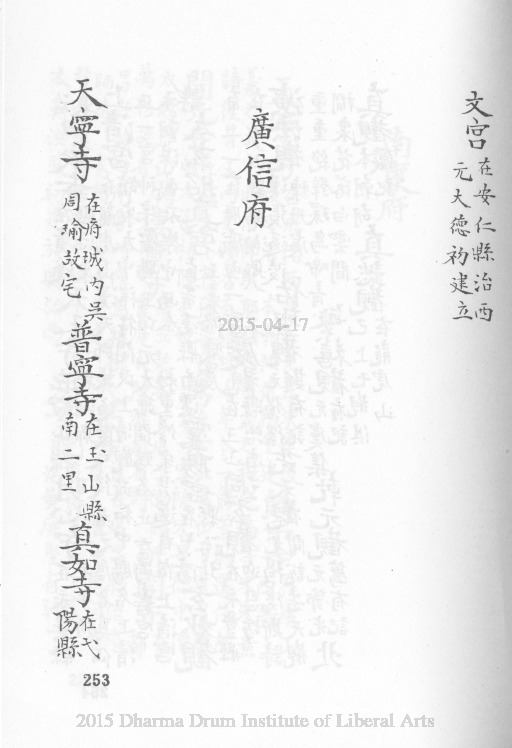 文宮在安仁縣治西
元大德初建立
廣信府
天寧寺在府城內吳
周瑜故宅
普寧寺在玉山縣
南二里
真如寺在弋
陽縣
253
2015-04-17
2015 Dharma Drum Institute of Liberal Arts